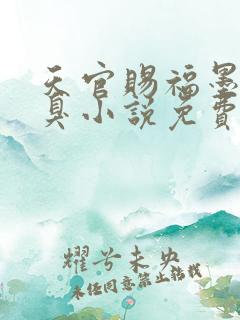 天官赐福墨
真小说免费
耀兮未央
未经同意禁止转载